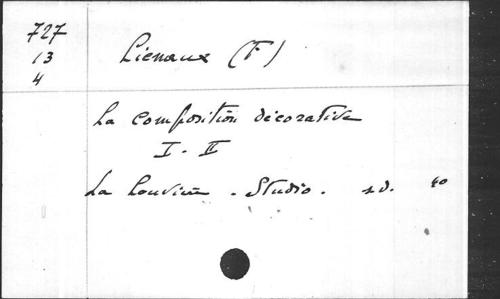 727
13
4
Lienaux (F)
La composition décorative
I - II
La Louvière - Studio - s.d. 4o